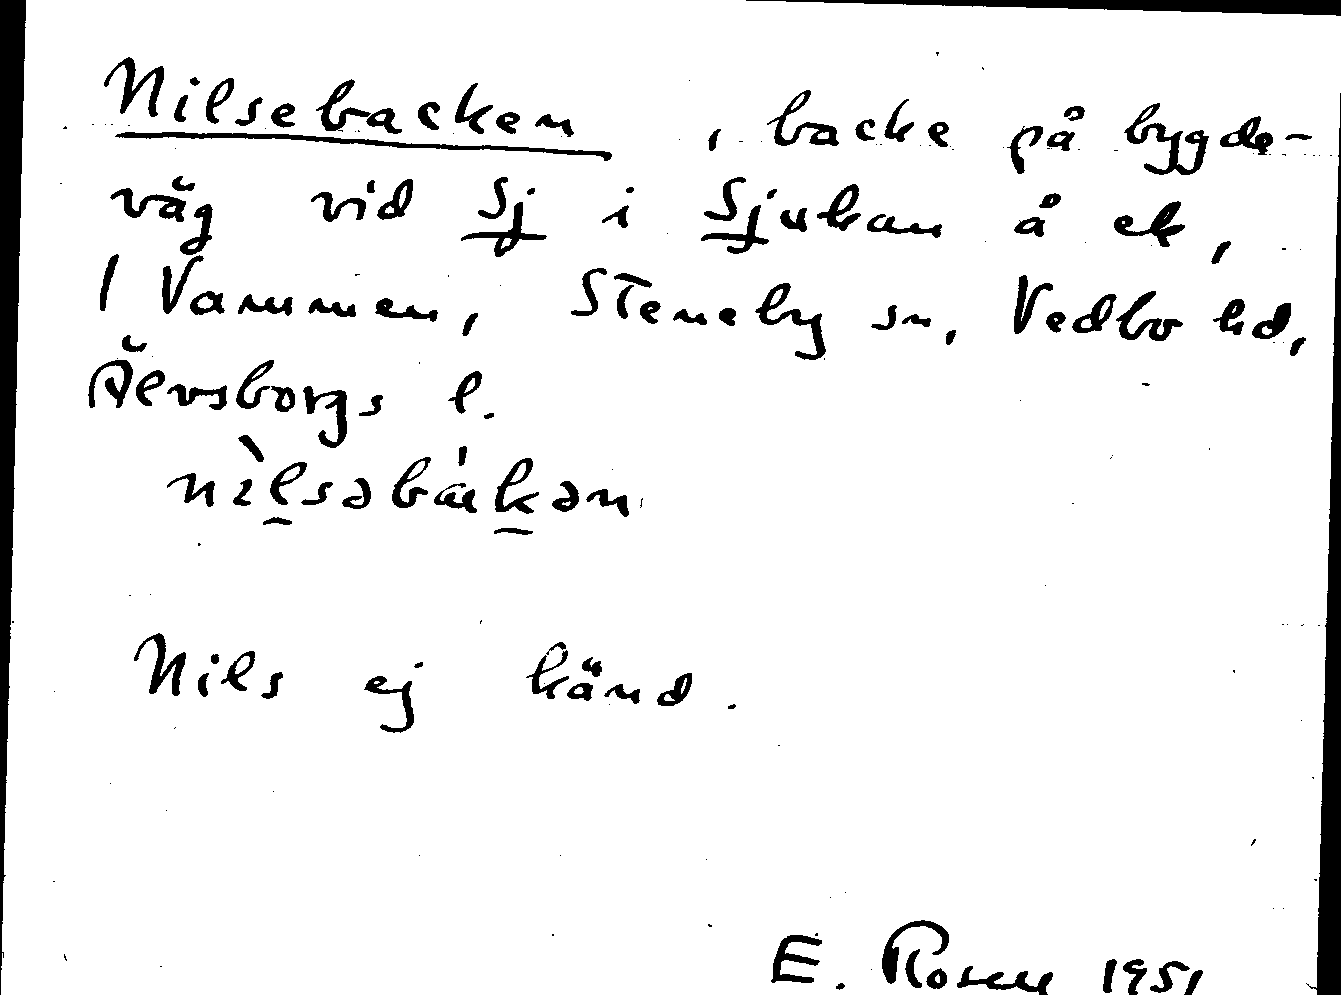 Nilsebacken, backe på bygde-
väg vid Sj i Sjukan å ek,
1 Vammen, Steneby sn, Vedbo hd,
Älvsborgs l.
nìlsəbákən
Nils ej känd.
E. Rosell 1951